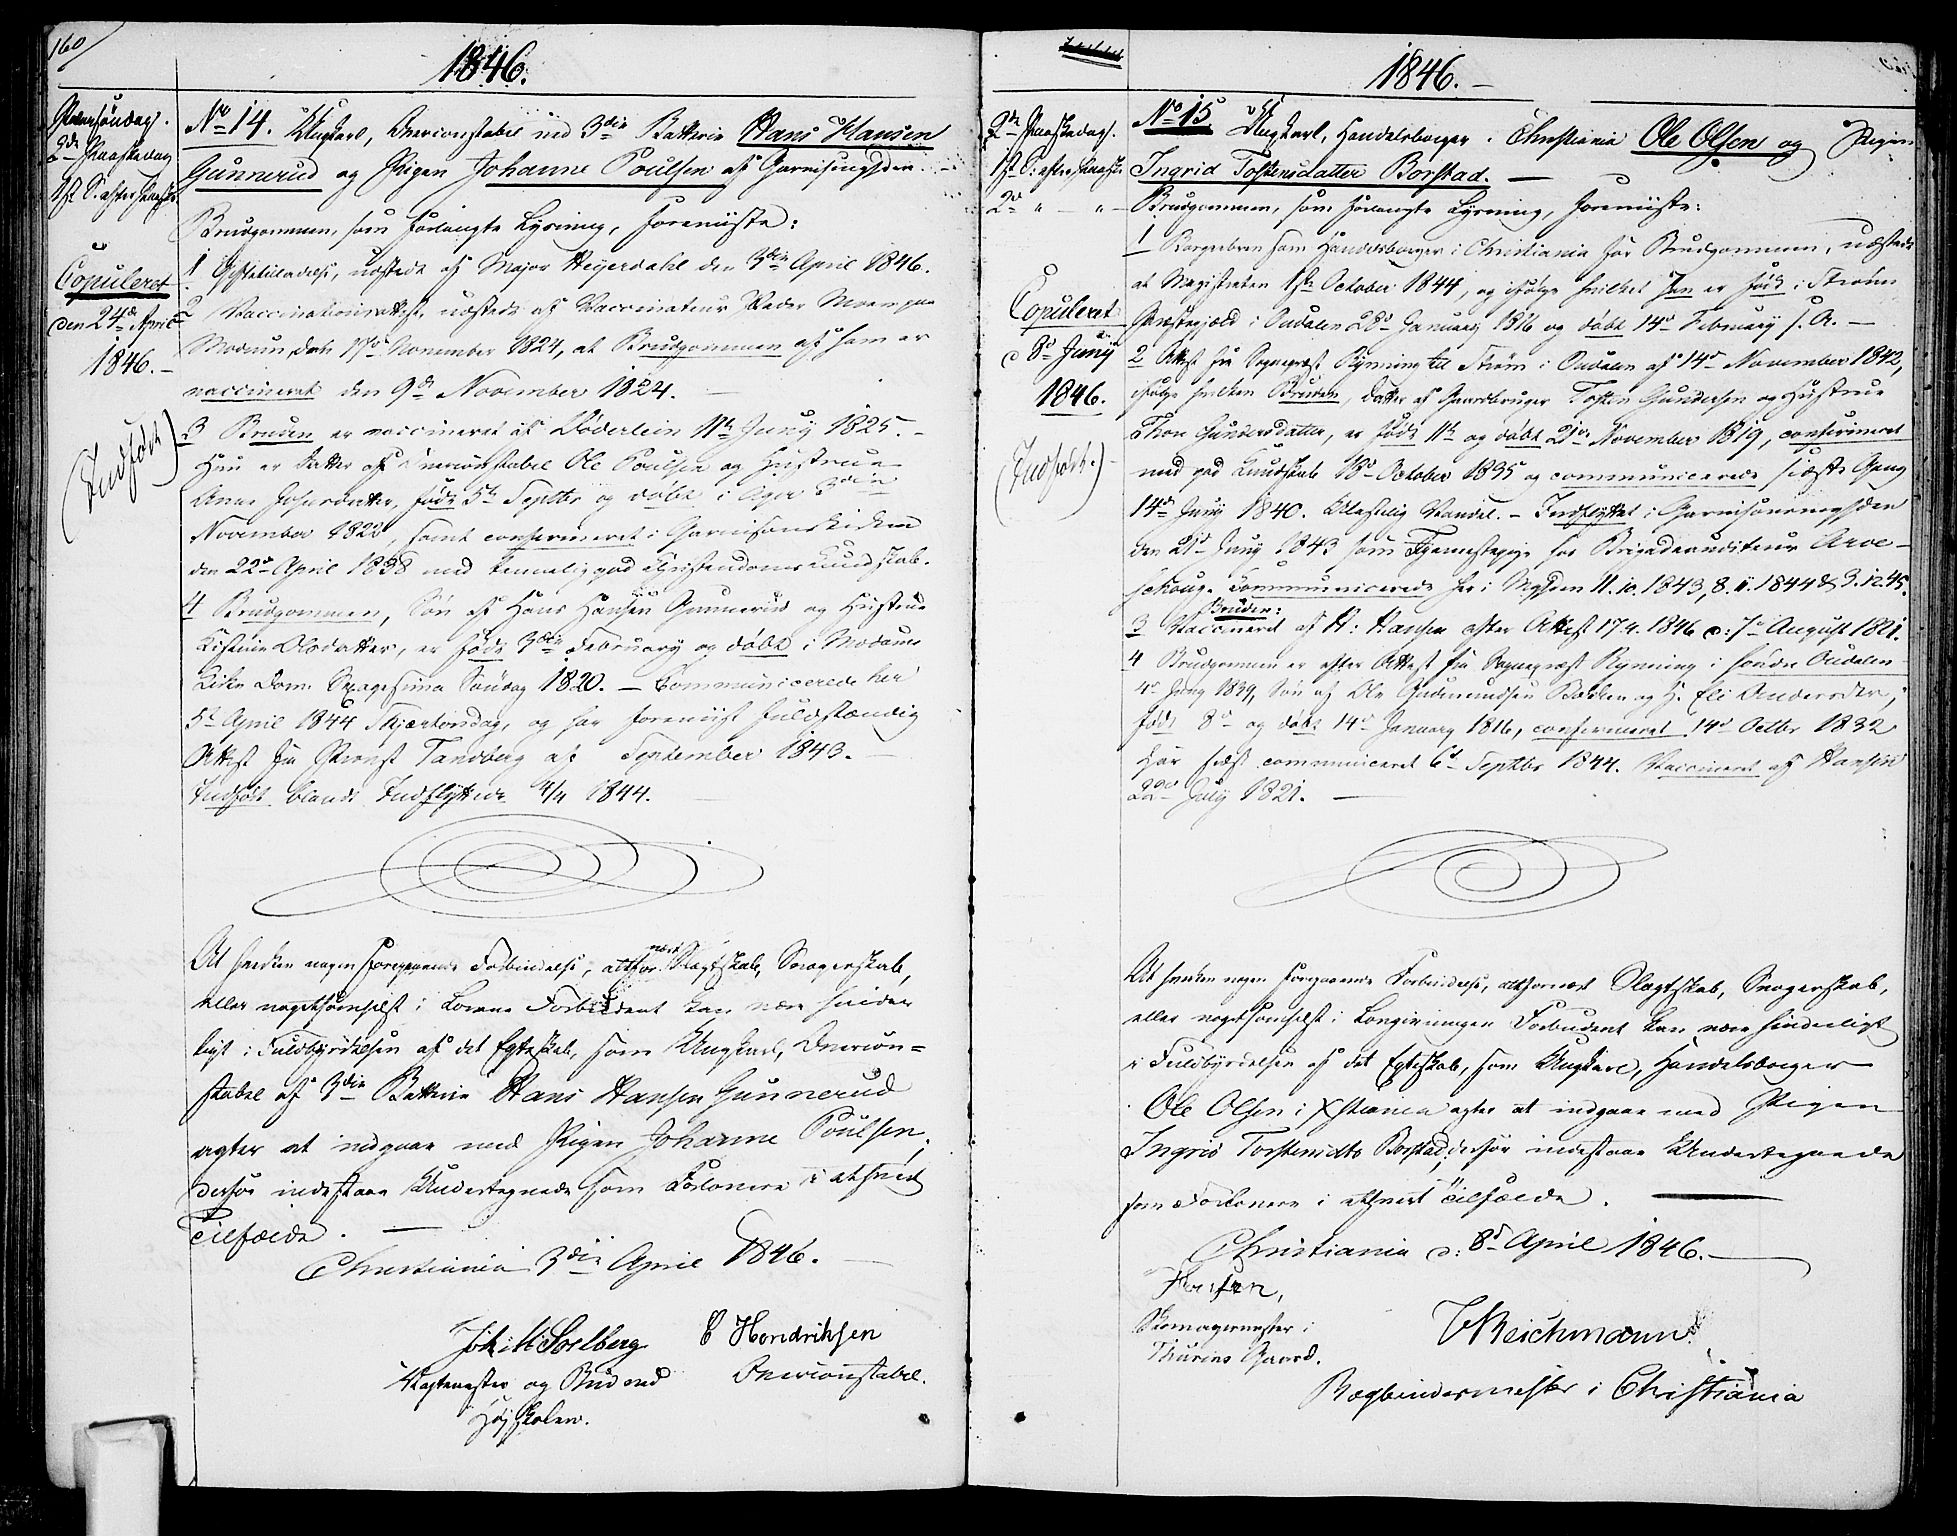 160
1846.
Palmesøndag.
2den Paaskedag
1ste S. efter Paaske
Copuleret
den 24de April
1846.
(Indført)
No 14. Ungkarl, Overconstabel ved 3die Batterie Hans Hansen
Gunnerud og Pigen Johanne Poulsen af Garnisonsmgd.
Brudgommen, som forlangte Lysning, foreviiste:
1 Giftetilladelse, udstedt af Major Heyerdahl den 3die April 1846.
2 Vaccinationsattest, udstedt af Vaccinateur Peder Moen paa
Modum, dat. 17de November 1824, at Brudgommen af ham er
vaccineret den 9de November 1824.
3 Bruden er vaccineret af Döderlein 11te Juny 1825.
Hun er Datter af Overconstabel Ole Poulsen og Hustrue
Anne Johnsdatter, født 5te Septbr og døbt i Ager 3die
November 1822, samt confirmeret i Garnisonskirken
den 22de April 1838 med temmelig god Christendoms Kundskab.
4 Brudgommen, Søn af Hans Hansen Gunnerud og Hustrue
Kirstine Olsdatter, er født 3die February og døbt i Modums
Kirke Dom. Sexagesima Søndag 1820. – Communicerede her
5te April 1844 Skjærtorsdag, og har foreviist fuldstændig
Attest fra Provst Tandberg af September 1843.
Indført blandt Indflyttede 4/4 1844.
At hverken nogen foregaaende Forbindelse, altfor nært Slægtskab, Svogerskab,
eller nogetsomhelst i Lovene Forbudent kan være hinder
ligt i Fuldbyrdelsen af det Egteskab, som Ungkarl, Overcon=
stabel af 3die Batterie Hans Hansen Gunnerud
agter at indgaae med Pigen Johanne Poulsen,
derfor indestaae Undertegnede som Forlovere i ethvert
Tilfælde.
Christiania 3die April 1846.
Joh: M: Solberg C Hendriksen
Vagtmester og Bud ved Overconstabel.
Højskolen.
1846.
2den Paaskedag.
1ste S. efter Paaske
2den " – " –
Copuleret
d 8de Juny
1846.
(Indført.)
No 15. Ungkarl, Handelsborger i Christiania Ole Olsen og Pigen
Ingrid Tostensdatter Borstad.
Brudgommen, som forlangte Lysning, foreviiste:
1 Borgerbrev som Handelsborger i Christiania for Brudgommen, udstedt
at Magistraten 1ste October 1844, og ifølge hvilket han er født i Strøm
Præstegjeld i Oudalen 28de January 1816 og døbt 14de February s. A. –
2 Attest fra Sognepræst Rynning til Strøm i Oudalen af 14de November 1842,
ifølge hvilken Bruden, Datter af Gaardbruger Tosten Gundersen og Hustrue
Thon Gundersdatter, er født 11te og døbt 21de November 1819, confirmeret
med god Kundskab 18de October 1835 og communicerede sidste Gang
14de Juny 1840. Ulastelig Vandel. – Indflyttet i Garnisonsmgheden
den 21de Juny 1843 som Tjenestepige hos Brigadeauditeur Arve-
schoug. Communicerede her i Mgheden 11.10.1843, 8.11.1844 & 3.12.45.
3 Bruden: Vaccineret af H: Hansen efter Attest 17.4.1846 d: 7de August 1821.
4 Brudgommen er efter Attest fra Sognepræst Rynning i søndre Oudalen
4de Juny 1839, Søn af Ole Gudmundsen Bækken og H. Eli Andersdtr,
født 8de og døbt 14de January 1816, confirmeret 14de Octbr 1832
Har sidst communiceret 6te Septbr 1844. Vaccineret af Hansen
22de July 1821.
At hverken nogen foregaaende Forbindelse, altfornært Slægtskab, Svogerskab,
eller nogetsomhelst i Lovgivningen Forbudent kan være hinderligt
i Fuldbyrdelsen af det Egteskab, som Ungkarl, Handelsborger
Ole Olsen i Xstiania agter at indgaae med Pigen
Ingrid Torstensdtr Borstad, derfor indestaae Undertegnede
som Forlovere i ethvert Tilfælde.
Christiania d: 8de April 1846.
Skomagermester i Reichmann
Thurins Gaard.
Bogbindermester i Christiania